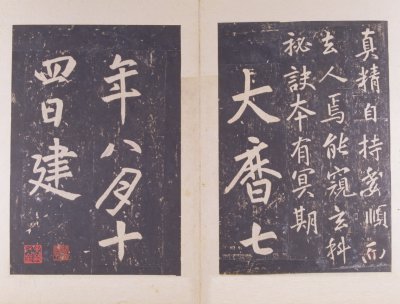 真精自持委順而
去人焉能窺玄科
祕訣本有冥期
大曆七
年八月十
四日建